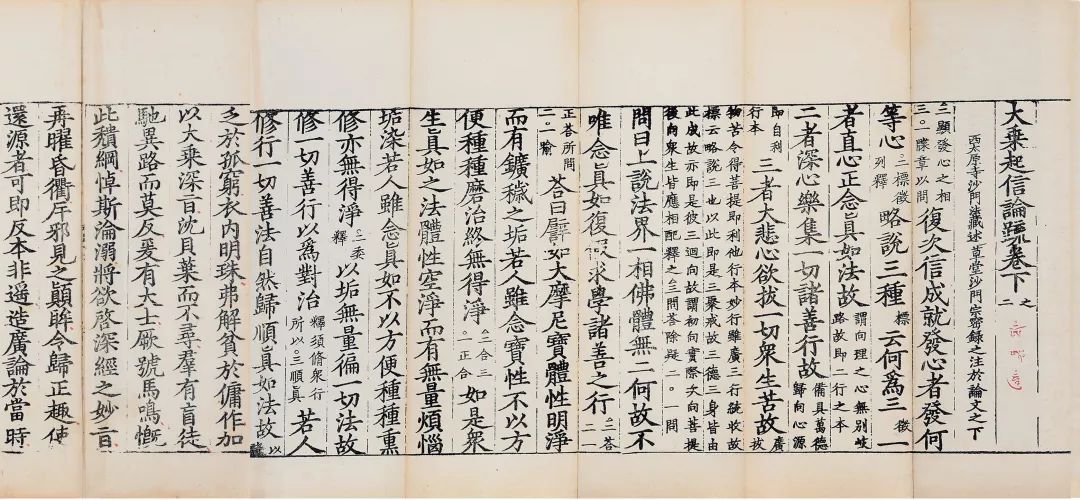 大乗起信論疏卷下之二
西太原寺沙門法藏述草堂沙門宗密録之注於論文之下
三顯發心之相三。一牒章以問復次信成就發心者發何
等心三標徵列釋略說三種標云何爲三徵一
者直心正念眞如法故謂向理之心無別岐路故即二行之本
二者深心樂集一切諸善行故備具萬德歸向心源
即自利行本三者大悲心欲拔一切衆生苦故廣拔
物苦令得菩提即利他行本妙行雖廣三行統收故
標云略說三也以此即是三聚戒故三德三身皆由
此成故亦即是彼三迴向故謂初向實際次向菩提
後向衆生皆應相配釋之△三問荅除疑二。一問
問曰上說法界一相佛體無二何故不
唯念眞如復假求學諸善之行三荅二一
正荅所問二。一喻荅曰譬如大摩尼寶體性明淨
而有鑛穢之垢若人雖念寶性不以方
便種種磨治終無得淨△二合三。一正合如是衆
生眞如之法體性空淨而有無量煩惱
垢染若人雖念眞如不以方便種種熏
修亦無得淨△二委釋以垢無量徧一切法故
修一切善行以爲對治釋須修衆行所以△三順眞若人
修行一切善法自然歸順眞如法故以
乏於孤窮衣內明珠弗解貧於傭作加
以大乘深旨沈貝葉而不尋羣有盲徒
馳異路而莫反爰有大士厥號馬鳴慨
此穨綱悼斯淪溺將欲啓深經之妙旨
再曜昏衢斥邪見之顛眸令歸正趣使
還源者可即反本非遥造廣論於當時